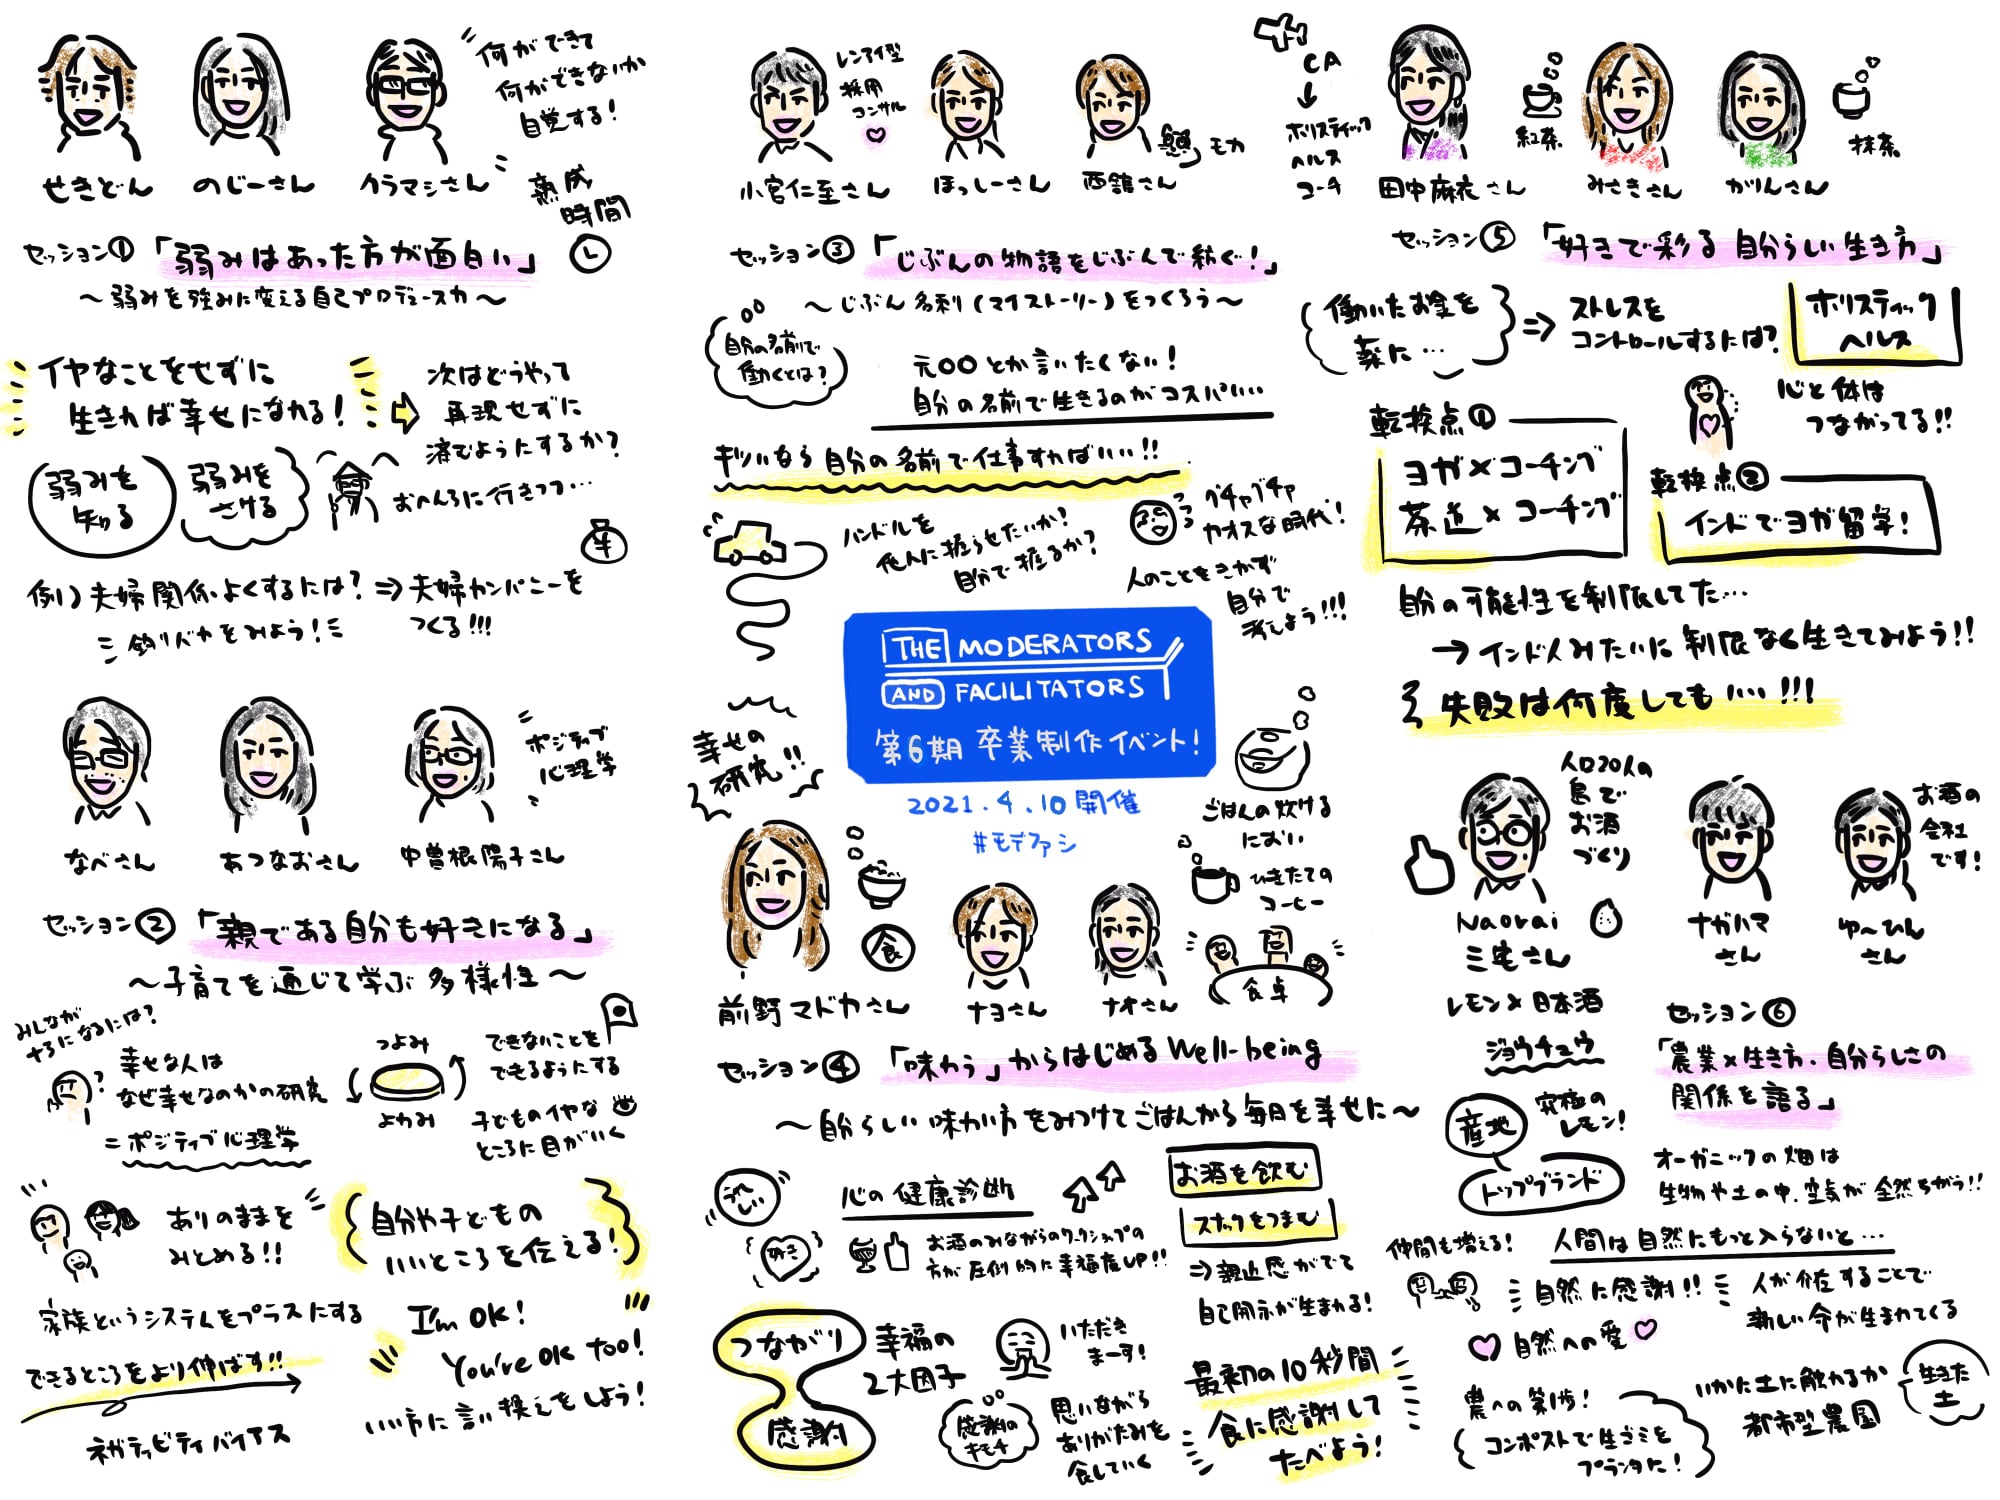 せきどん
のじーさん
クラマシさん
何ができて
何ができないか
自覚する!
熟成
時間
セッション①「弱みはあった方が面白い」
〜弱みを強みに変える自己プロデュース力〜
イヤなことをせずに
生きれば幸せになれる!
次はどうやって
再現せずに
済むようにするか?
弱みを
知る
弱みを
さける
おへんろに行きつつ…
例)夫婦関係よくするには?⇒夫婦カンパニーを
つくる!!!
釣りバカをみよう!
¥
なべさん
あつなおさん
中曽根陽子さん
ポジティブ
心理学
セッション②「親である自分も好きになる」
〜子育てを通じて学ぶ多様性〜
みんなが
?
幸せな人は
なぜ幸せなのかの研究
=ポジティブ心理学
つよみ
よわみ
できないことを
できるようにする
子どものイヤな
ところに目がいく
ありのままを
みとめる!!
自分や子どもの
いいところを伝える!
家族というシステムをプラスにする
できるところをより伸ばす!!
ネガティビティバイアス
I'm OK!
You're OK too!
いい方に言い換えをしよう!
小宮仁至さん
レンアイ型
採用
コンサル
ほっしーさん
西舘さん
モカ
セッション③「じぶんの物語をじぶんで紡ぐ!」
〜じぶん名刺(マイストーリー)をつくろう〜
自分の名前で
働くとは?
元〇〇とか言いたくない!
自分の名前で生きるのがコスパいい…
キツいなら自分の名前で仕事すればいい!!
ハンドルを
他人に握らせたいか?
自分で握るか?
グチャグチャ
カオスな時代!
人のことをきかず
自分で
THE MODERATORS
AND FACILITATORS
第6期 卒業制作イベント!
2021.4.10開催
#モデファシ
幸せの
研究!!
前野マドカさん
食
ナヨさん
ナオさん
ごはんの炊ける
におい
ひきたての
コーヒー
食卓
セッション④「味わう」からはじめるWell-being
〜自分らしい味わい方をみつけてごはんから毎日を幸せに〜
うれしい
好き
心の健康診断
お酒のみながらのワークショップの
方が圧倒的に幸福度UP!!
お酒を飲む
スナックをつまむ
⇒親近感がでて
自己開示が生まれる!
つながり
感謝
幸福の
2大因子
いただき
まーす!
感謝の
キモチ
思いながら
ありがたみを
食していく
最初の10秒間
食に感謝して
たべよう!
CA
↓
ホリスティック
ヘルス
コーチ
田中麻衣さん
紅茶
みさきさん
かりんさん
抹茶
セッション⑤「好きで彩る自分らしい生き方」
働いたお金を
薬に…
⇒ストレスを
コントロールするには?
ホリスティック
ヘルス
心と体は
つながってる!!
転換点①
ヨガ×コーチング
茶道×コーチング
転換点②
インドでヨガ留学!
自分の可能性を制限してた…
→インド人みたいに制限なく生きてみよう!!
失敗は何度してもいい!!!
人口20人の
島で
お酒
づくり
Naorai
三宅さん
ナガハマ
さん
ゆ〜ひん
さん
お酒の
会社
です!
レモン×日本酒
ジョウチュウ
セッション⑥
「農業×生き方・自分らしさの
関係を語る」
産地
究極の
レモン!
トップブランド
オーガニックの畑は
生物や土の中、空気が全然ちがう!!
仲間も増える!
人間は自然にもっと入らないと…
自然に感謝!!
自然への愛
人が介在することで
新しい命が生まれてくる
農への第1歩!
コンポストで生ゴミを
プランタに!
いかに土に触れるか
都市型農園
生きた
土